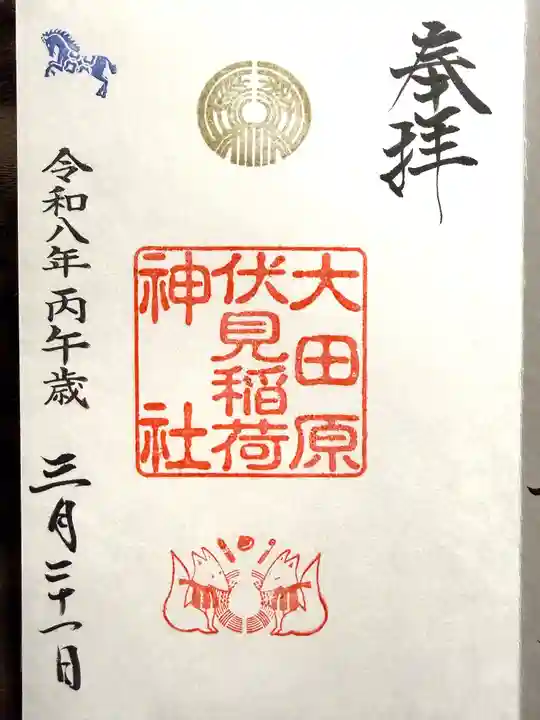 奉拝
大田原
伏見稲荷
神社
令和八年丙午歳 三月二十一日